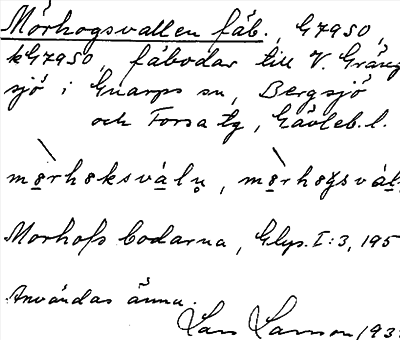 Mörhogsvallen fäb., G7950,
kG7950, fäbodar till V. Gräng
sjö i Gnarps sn, Bergsjö
och Forsa tg, Gävleb. l.
Morhofs bodarna, Glys. I:3, 195
Användas ännu.
Lars Larsson, 193